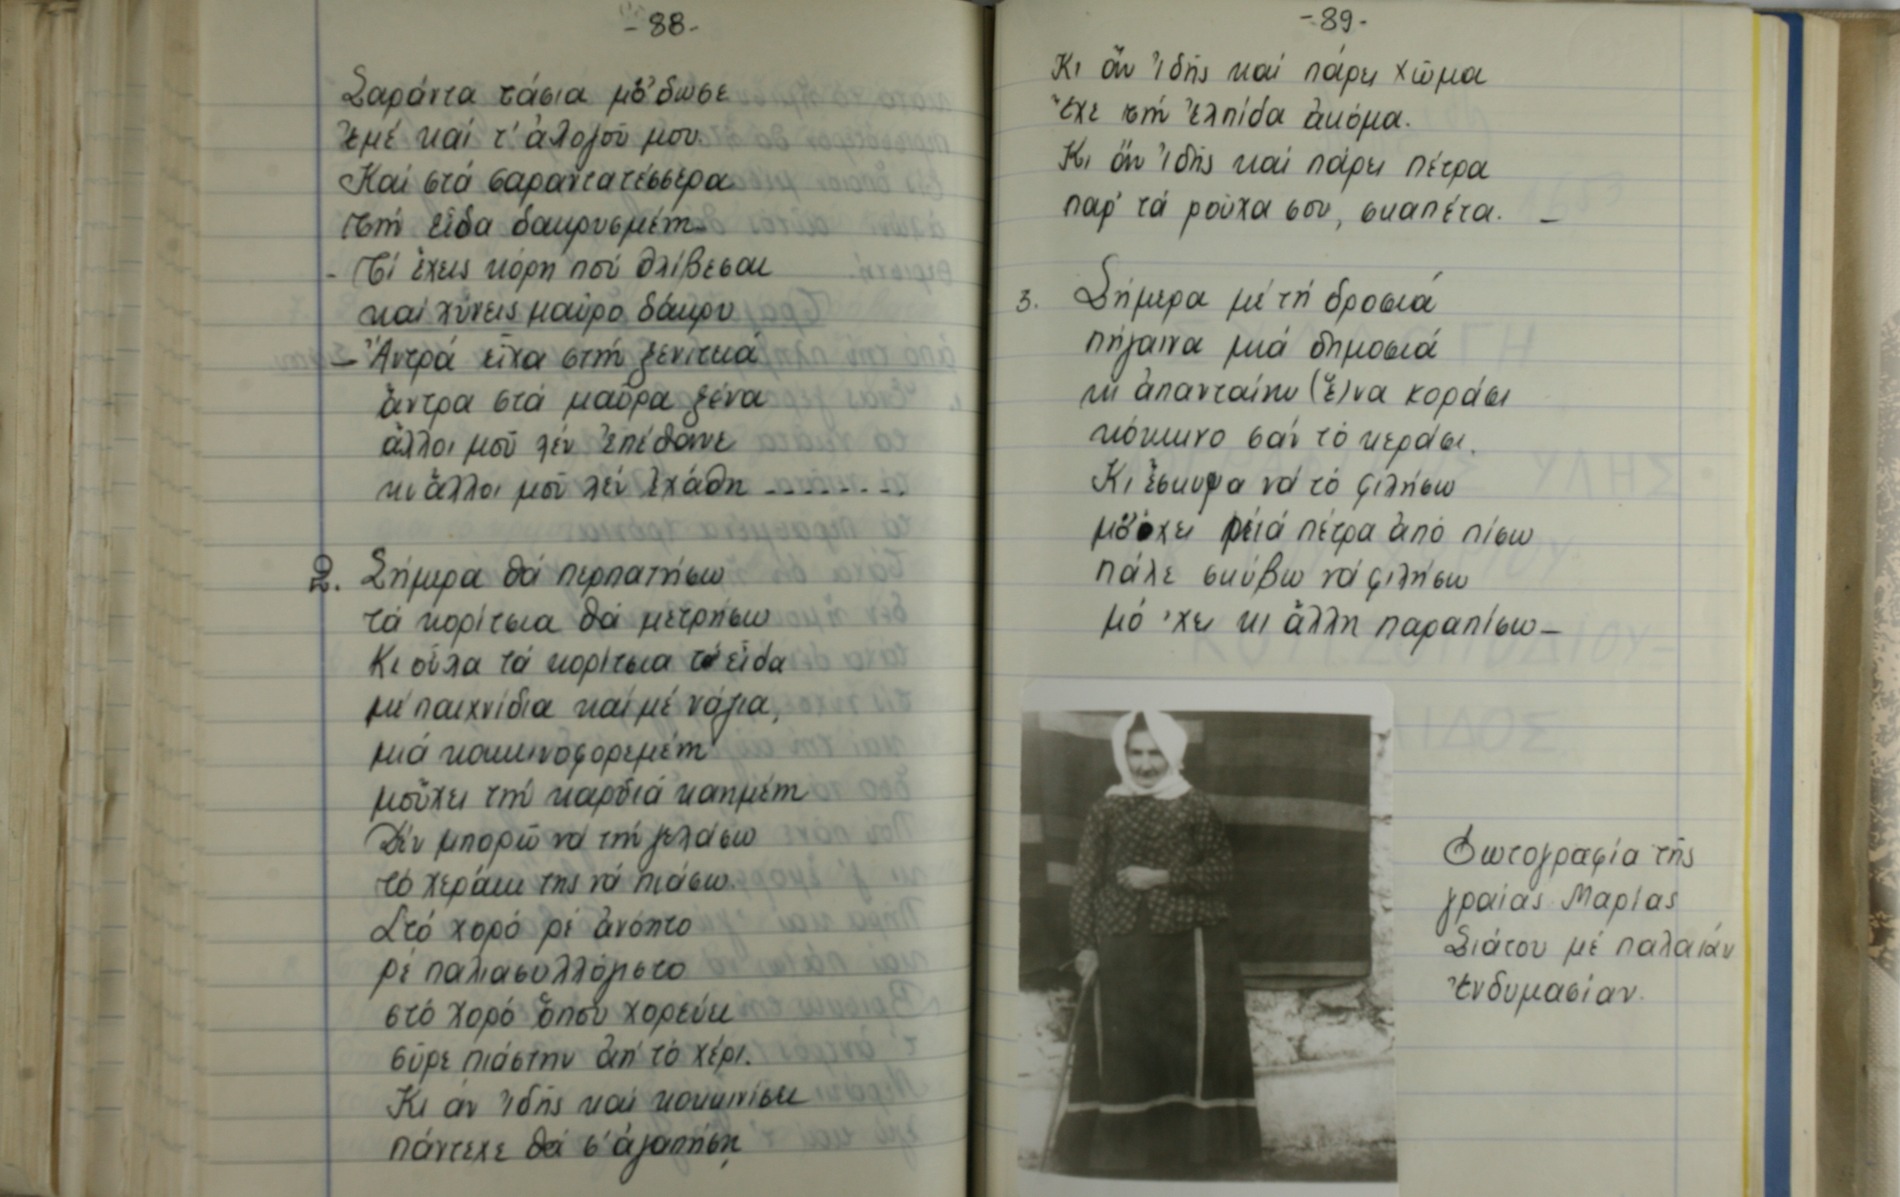 -88-
Σαράντα τάσια μὄδωσε
ἐμέ καί τ' ἀλόγοῦ μου.
Καί στά σαραντατέσσερα
τήν εἶδα δακρυσμένη
- Τί ἔχεις κόρη πού θλίβεσαι
καί χύνεις μαῦρο δάκρυ
- Ἄντρά εἶχα στήν ξενιτειά
ἄντρα στά μαῦρα ξένα
ἄλλοι μοῦ λέν ἐπέθανε
κι ἄλλοι μοῦ λέν ἐχάθη --------
2. Σήμερα θά περπατήσω
τά κορίτσια θά μετρήσω
Κι οὖλα τά κορίτσια τά εἶδα
μέ παιχνίδια καί μέ νάζια,
μιά κοκκινοφορεμένη
μοὔχει τήν καρδιά καημένη
Δέν μπορῶ νά τήν γελάσω
τό χεράκι της νά πιάσω.
Στό χορό ρέ ἀνόητο
ρέ παλιασυλλόγιστο
στό χορό ὅπου χορεύει
σῦρε πιάστην ἀπ' τό χέρι.
Κι ἄν ἰδῆς καί κοκκινίσει
πάντεχε θά σ' ἀγαπήση
-89-
Κι ἄν ἰδῆς καί πάρει χῶμα
ἔχε τήν ἐλπίδα ἀκόμα.
Κι ἄν ἰδῆς καί πάρει πέτρα
παρ' τά ροῦχα σου, σκαπέτα. -
3. Σήμερα μέ τή δροσιά
πήγαινα μιά δημοσιά
κι ἀπανταίνω (ἕ)να κοράσι
κόκκινο σάν τό κεράσι.
Κι ἔσκυψα νά τό φιλήσω
μὄχει μιά πέτρα ἀπό πίσω
πάλε σκύβω νά φιλήσω
μό 'χει κι ἄλλη παραπίσω -
Φωτογραφία τῆς
γραίας Μαρίας
Σιάτου μέ παλαιάν
ἐνδυμασίαν.